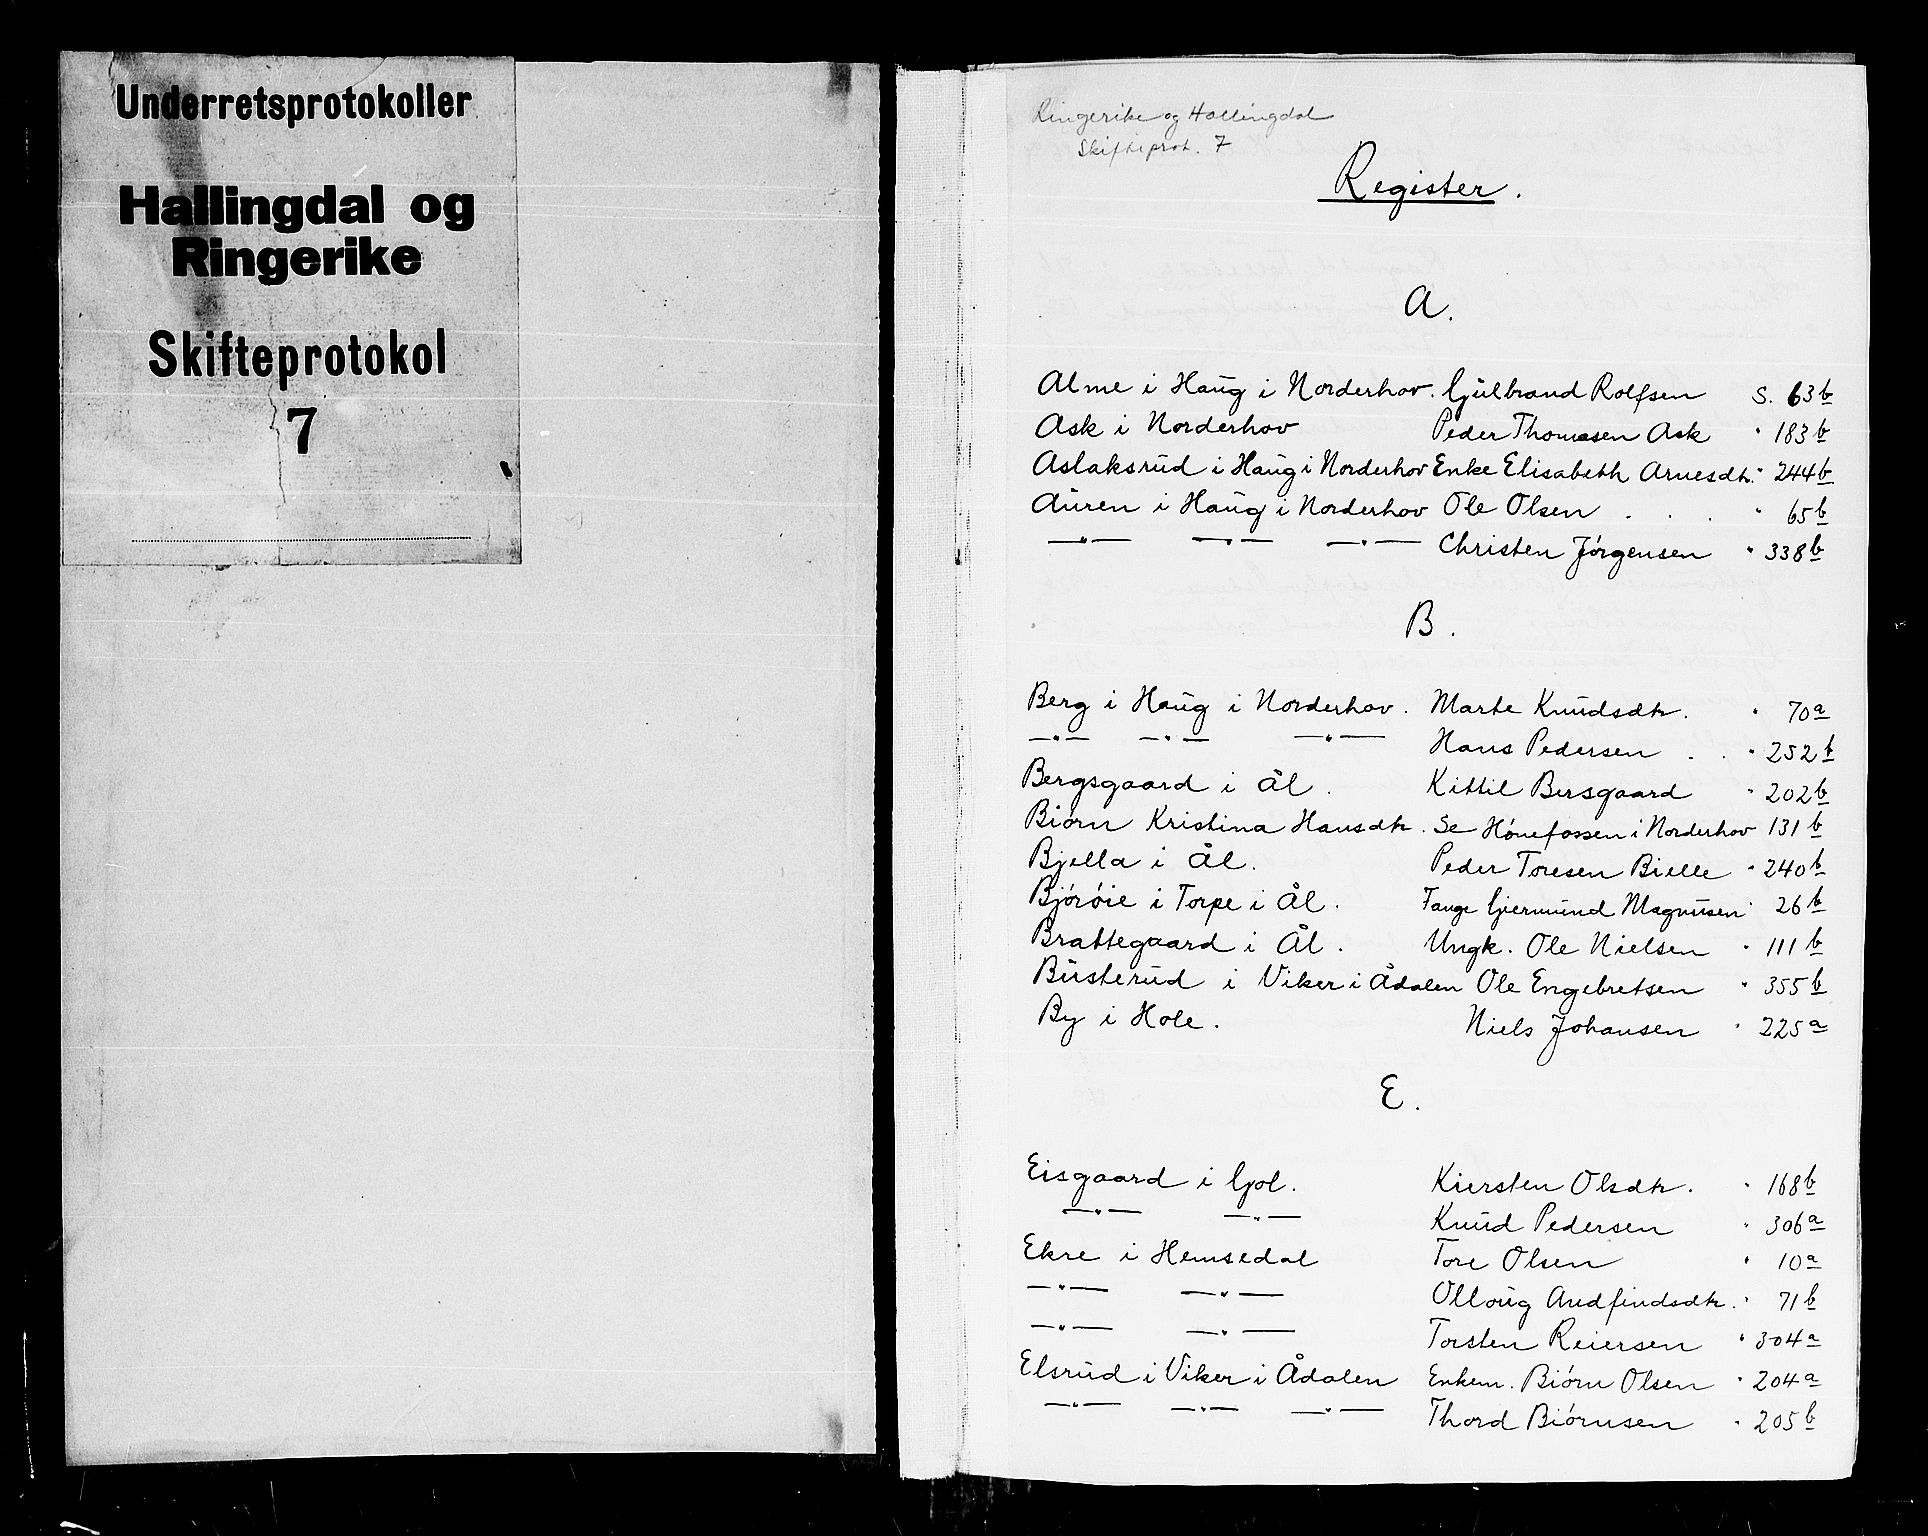 Underretsprotokoller
Hallingdal og
Ringerike
Skifteprotokol
7
Ringerike og Hallingdal
Skifteprot. 7
Register.
A.
Alme i Haug i Norderhov. Gulbrand Rolfsen S. 63b
Ask i Norderhov Peder Thomasen Ask " 183b
Aslaksrud i Haug i Norderhov Enke Elisabeth Arnesdtr. " 244b
Auren i Haug i Norderhov Ole Olsen . . . " 65b
—"— —"— —"— Christen Jørgensen " 338b
B.
Berg i Haug i Norderhov. Marte Knudsdtr. " 70a
—"— —"— —"— Hans Pedersen . . " 252b
Bergsgaard i Ål. Kittil Bersgaard " 202b
Biørn Kristina Hansdtr. Se Hønefossen i Norderhov 131b
Bjella i Ål. Peder Toresen Bielle " 240b
Bjørøie i Torpe i Ål. Fange Giermund Magnusen " 26b
Brattegaard i Ål. Ungk. Ole Nielsen " 111b
Busterud i Viker i Ådalen Ole Engebretsen " 355b
By i Hole. Niels Johansen " 225a
E.
Eisgaard i Gol. Kiersten Olsdtr. " 168b
—"— —"— Knud Pedersen " 306a
Ekre i Hemsedal Tore Olsen " 10a
—"— —"— Olloug Andfindsdtr. " 71b
—"— —"— Torsten Reiersen " 304a
Elsrud i Viker i Ådalen Enkem. Biørn Olsen " 204a
—"— —"— —"— Thord Biørnsen " 205b